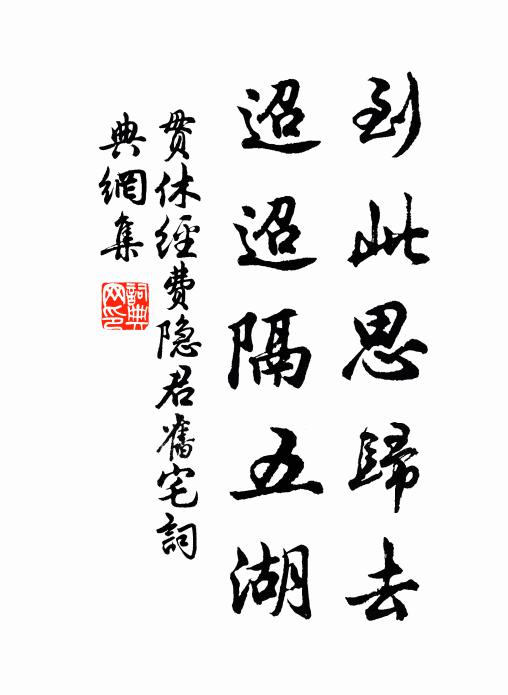 到此思歸去
迢迢隔五湖
貫休經費隐君舊宅詞
典網集
詞典網印